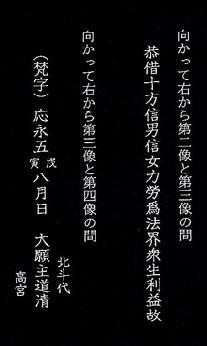 向かって右から第二像と第三像の間
恭借十方信男信女力労爲法界衆生利益故
向かって右から第三像と第四像の間
(梵字) 応永五戊寅八月日 大願主道清
北斗代
高宮